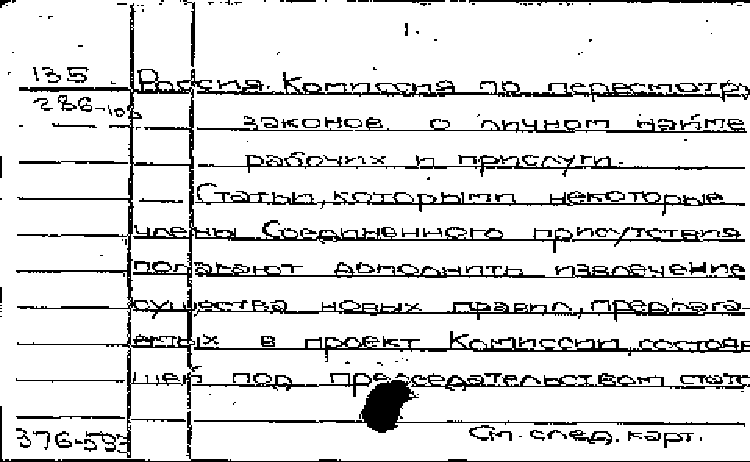 1.
135 Россия. Комиссия по пересмотру
286-108 законов о личном найме
рабочих и прислуги.
Статьи, которыми некоторые
члены Соединенного присутствия
полагают дополнить извлечение
существа новых правил, предлага
емых в проект Комиссии, состояв
шей под председательством статс
376-583 См. след. карт.